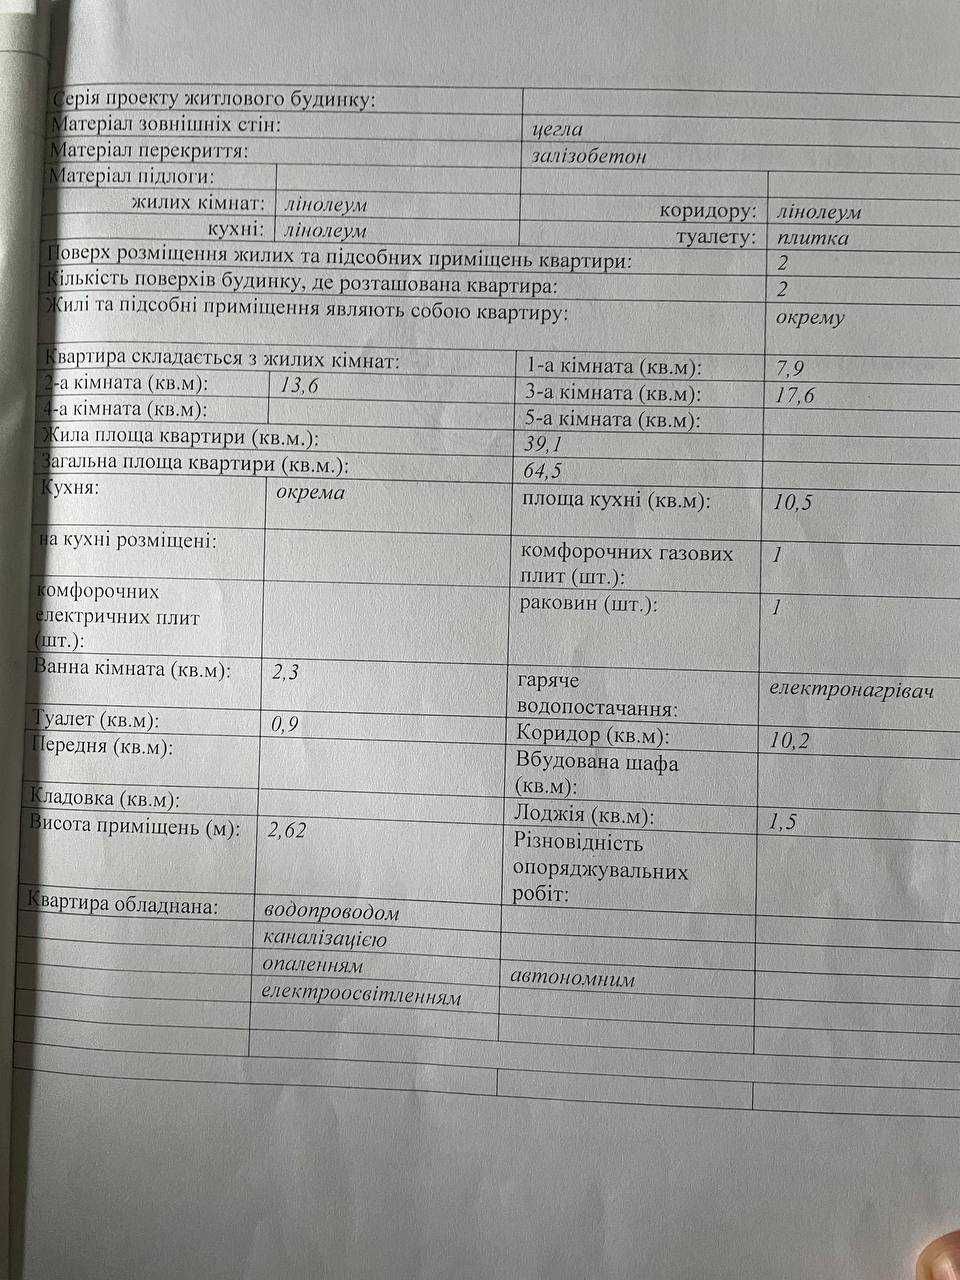 Серія проекту житлового будинку:
Матеріал зовнішніх стін: цегла
Матеріал перекриття: залізобетон
Матеріал підлоги:
жилих кімнат: лінолеум коридору: лінолеум
кухні: лінолеум туалету: плитка
Поверх розміщення жилих та підсобних приміщень квартири: 2
Кількість поверхів будинку, де розташована квартира: 2
Жилі та підсобні приміщення являють собою квартиру: окрему
Квартира складається з жилих кімнат: 1-а кімната (кв.м): 7,9
2-а кімната (кв.м): 13,6 3-а кімната (кв.м): 17,6
4-а кімната (кв.м): 5-а кімната (кв.м):
Жила площа квартири (кв.м.): 39,1
Загальна площа квартири (кв.м.): 64,5
Кухня: окрема площа кухні (кв.м): 10,5
на кухні розміщені: комфорочних газових
плит (шт.): 1
комфорочних
електричних плит
(шт.): раковин (шт.): 1
Ванна кімната (кв.м): 2,3 гаряче
водопостачання: електронагрівач
Туалет (кв.м): 0,9 Коридор (кв.м): 10,2
Передня (кв.м): Вбудована шафа
(кв.м):
Кладовка (кв.м): Лоджія (кв.м): 1,5
Висота приміщень (м): 2,62 Різновідність
опоряджувальних
робіт:
Квартира обладнана: водопроводом
каналізацією
опаленням автономним
електроосвітленням